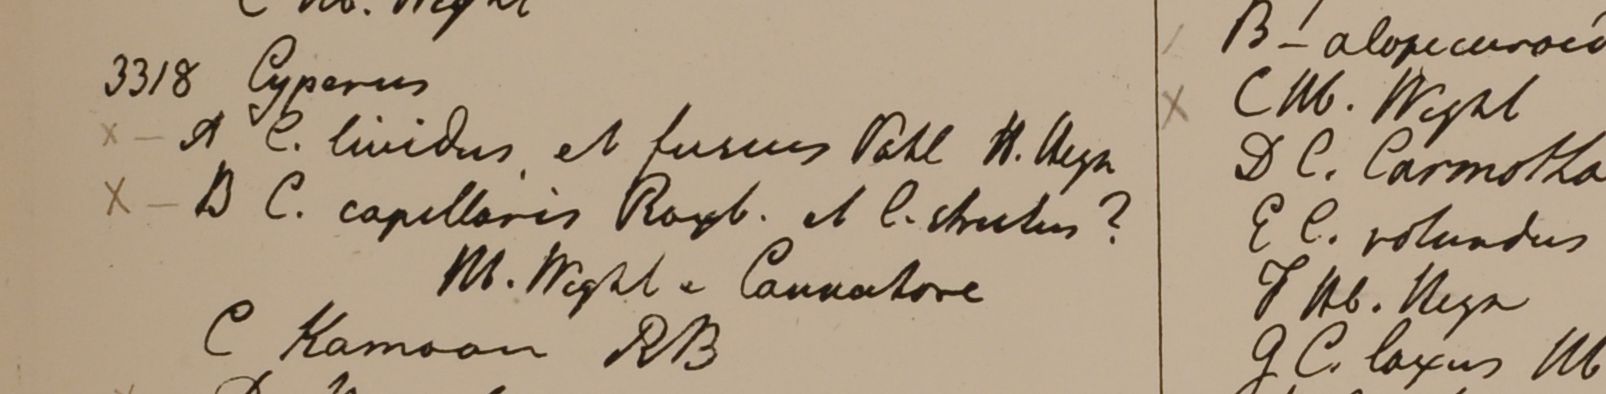 C Hb. Wight
3318 Cyperus
x – A C. lividus et fuscus Vahl H. Heyn
x – B C. capillaris Roxb. et C. strictus?
Hb. Wight e Cannatore
C Kamoon RB
B – alopecuroid
x C Hb. Wight
D C. Carmotha
E C. rotundus
F Hb. Heyn
G C. laxus Hb